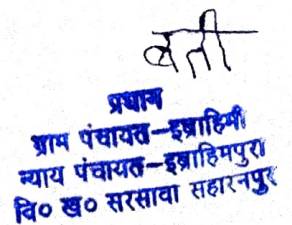 बती
प्रधान
ग्राम पंचायत-इब्राहिमी
न्याय पंचायत-इब्राहिमपुरा
वि० ख० सरसावा सहारनपुर